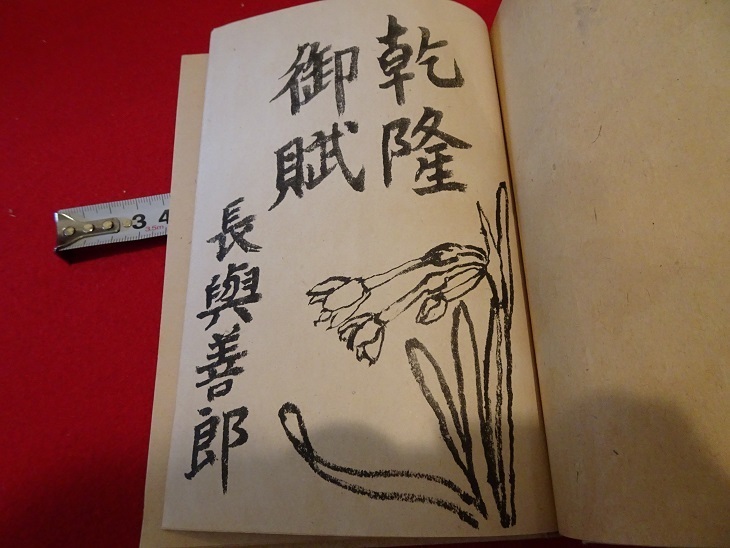 乾隆
御賦
長與善郎
3 4
3.5m